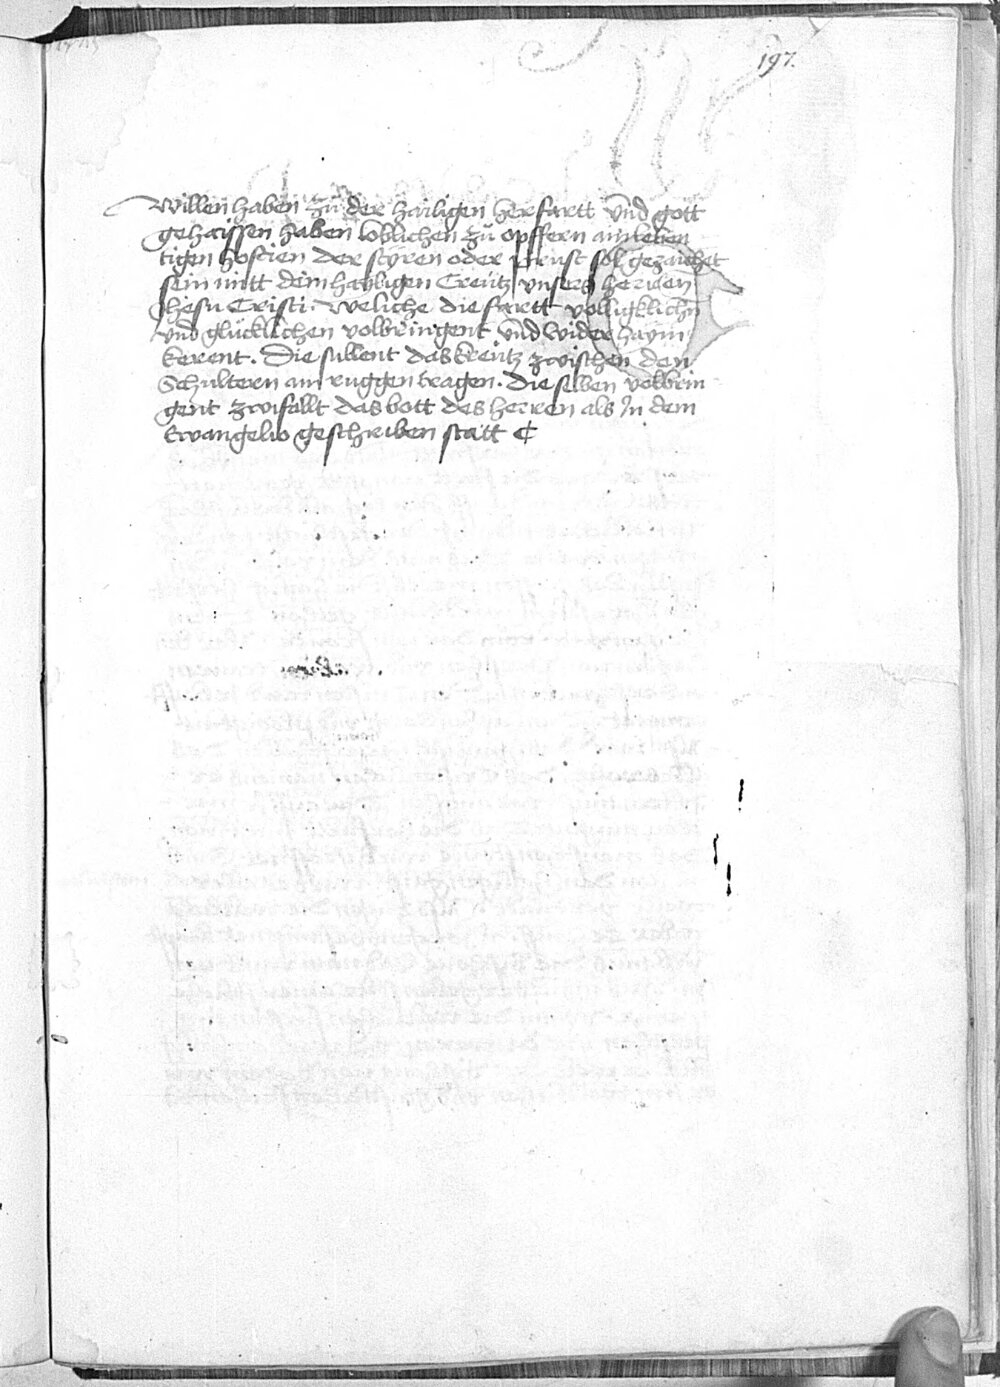 197.
willen haben zů der hailigen herfartt Vnd gott
gehaissen haben loblichen zů opffern ain leben
tigen hostien der styren oder prust sol gezaichet
sein mitt dem hayligen Creütz vnsers herren
Jhesu Cristi. weliche die fartt volligklichn
vnd glücklichen volbringent Vnd wider haym
kerent. Die sullent das kreutz zwischen den
Schultern am ruggen tragen. Die selben volbrin
gent zwifallt das bott des herren als In dem
Ewangelio geschriben statt